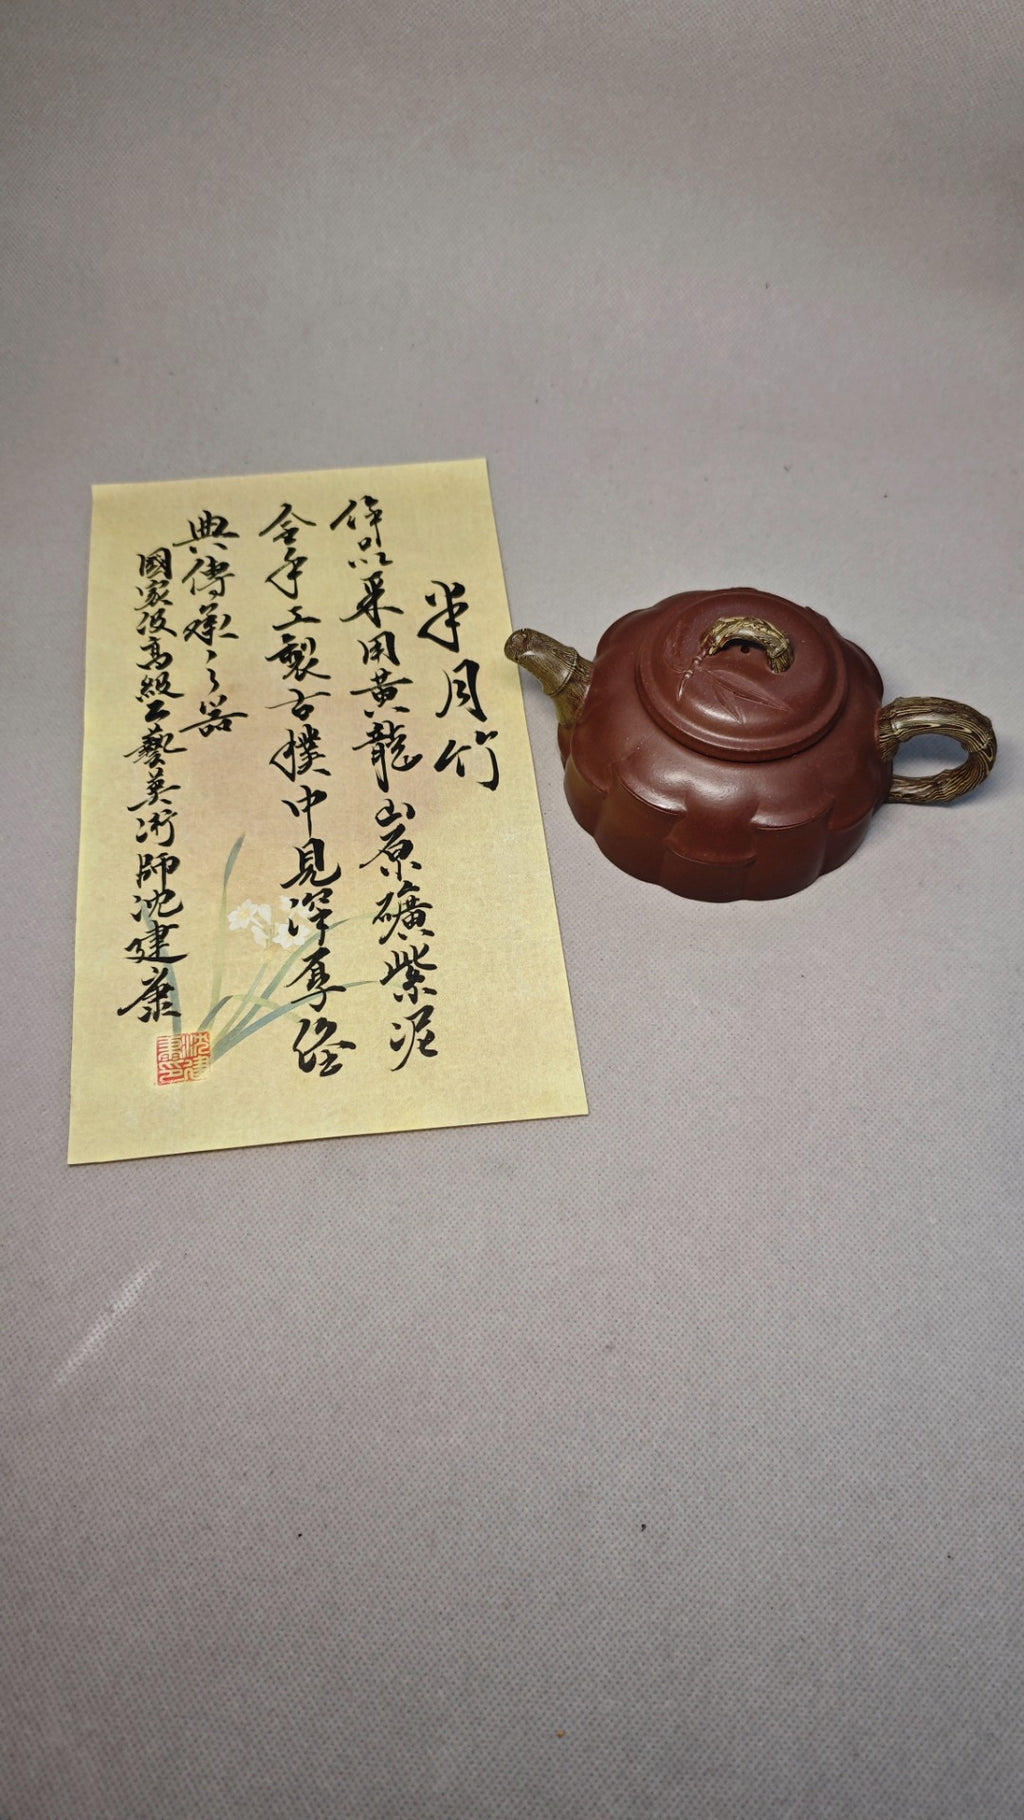 半月竹
作品采用黃龍山原礦紫泥
全手工製古樸中見深厚經
典傳承之器
國家级高級工藝美術師沈建康
沈建康印